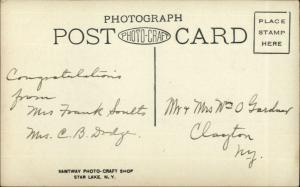 PHOTOGRAPH
POST PHOTO-CRAFT CARD
PLACE
STAMP
HERE
Congratulations
from
Mrs Frank Soults
Mrs. C. B. Dodge.
Mr & Mrs Wm O Gardner
Clayton
Ny.
SANTWAY PHOTO-CRAFT SHOP
STAR LAKE, N.Y.